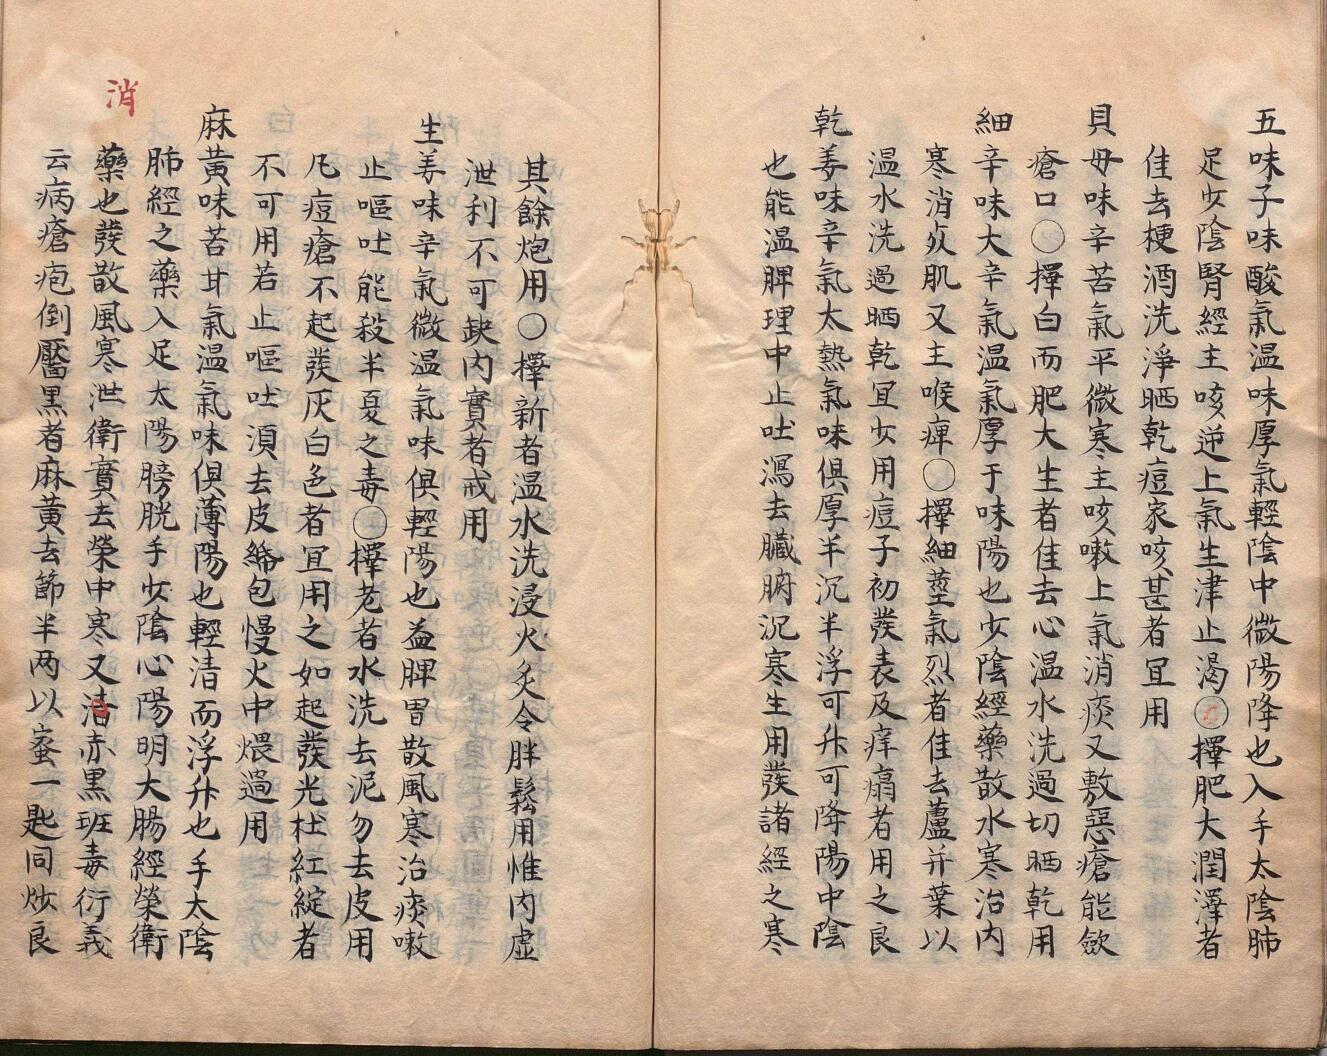 五味子味酸氣温味厚氣輕陰中微陽降也入手太陰肺
足少陰腎經主咳逆上氣生津止渴○擇肥大潤澤者
佳去梗酒洗淨晒乾痘家咳甚者宜用
貝母味辛苦氣平微寒主咳嗽上氣消痰又敷惡瘡能歛
瘡口○擇白而肥大生者佳去心温水洗過切晒乾用
細辛味大辛氣温氣厚于味陽也少陰經藥散水寒治内
寒消死肌又主喉痺○擇細莖氣烈者佳去蘆并葉以
温水洗過晒乾宜少用痘子初發表及痒瘍者用之良
乾姜味辛氣太熱氣味俱厚半沉半浮可升可降陽中陰
也能温脾理中止吐瀉去臟腑沉寒生用發諸經之寒
其餘炮用○擇新者温水洗浸火炙令胖鬆用惟内虚
泄利不可缺内實者戒用
生姜味辛氣微温氣味俱輕陽也益脾胃散風寒治痰嗽
止嘔吐能殺半夏之毒○擇老者水洗去泥勿去皮用
凡痘瘡不起發灰白色者宜用之如起發光壯紅綻者
不可用若止嘔吐湏去皮綿包慢火中煨過用
麻黄味苦甘氣温氣味俱薄陽也輕清而浮升也手太陰
肺經之藥入足太陽膀胱手少陰心陽明大腸經榮衛
藥也發散風寒泄衛實去榮中寒又赤黒班毒衍義
消
云病瘡疱倒靨黒者麻黄去節半两以蜜一匙同炒良